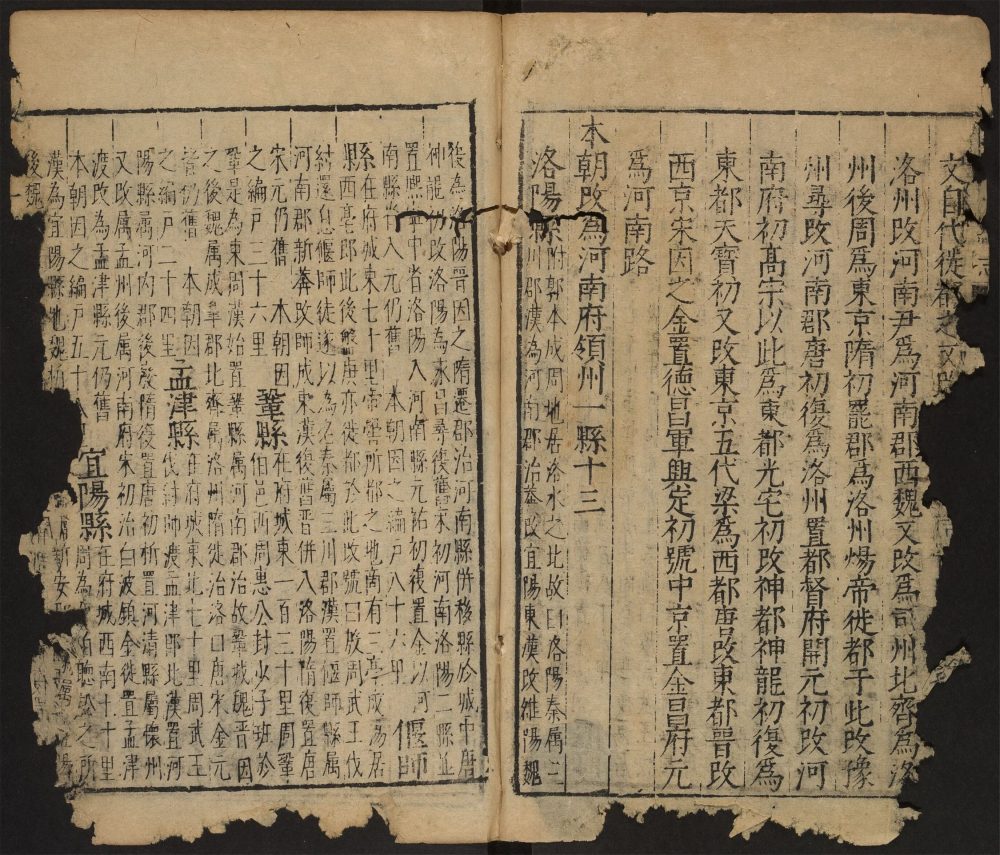 文自代徙都之又改
洛州改河南尹爲河南郡西魏又改爲司州北齊爲洛
州後周爲東京隋初罷郡爲洛州煬帝徙都于此改豫
州尋改河南郡唐初復爲洛州置都督府開元初改河
南府初高宗以此爲東都光宅初改神都神龍初復爲
東都天寶初又改東京五代梁爲西都唐改東都晋改
西京宋因之金置德昌軍興定初號中京置金昌府元
爲河南路
本朝改爲河南府領州一縣十三
洛陽縣
附郭本成周地居洛水之北故曰洛陽秦属三
川郡漢為河南郡治莽改宜陽東漢改雒陽魏
後為洛陽晋因之隋遷郡治河南縣併移縣於城中唐
神龍初改洛陽為永昌尋復舊宋初河南洛陽二縣並
置熙寧中省洛陽入河南縣元祐初復置金以河
南縣省入元仍舊 本朝因之編戸八十六里 偃師
縣在府城東七十里帝嚳所都之地南有三亭成湯居
縣西亳即此後盤庚亦徙都於此改號曰殷周武王伐
紂還息偃師徒遂以為名秦屬三川郡漢置偃師縣属
河南郡新莽改師成東漢復舊晋併入洛陽隋復置唐
宋元仍舊 本朝因
之編戸三十六里 鞏縣在府城東一百三十里周鞏
伯邑西周惠公封少子班於
鞏是為東周漢始置鞏縣属河南郡治故鞏城魏晋因
之後魏属成皐郡北齊属洛州隋徙治洛口唐宋金元
皆仍舊 本朝因
之編戸二十四里 孟津縣在府城東北七十里周武王
伐紂師渡孟津即此漢置河
陽縣属河内郡後廢隋復置唐初析置河清縣屬懷州
又改属孟州後属河南府宋初治白波鎮金徙置孟津
渡改為孟津縣元仍舊
本朝因之編戸五十 宜陽縣在府城西南七十里
周為 之所
漢為宜陽縣地魏
後魏